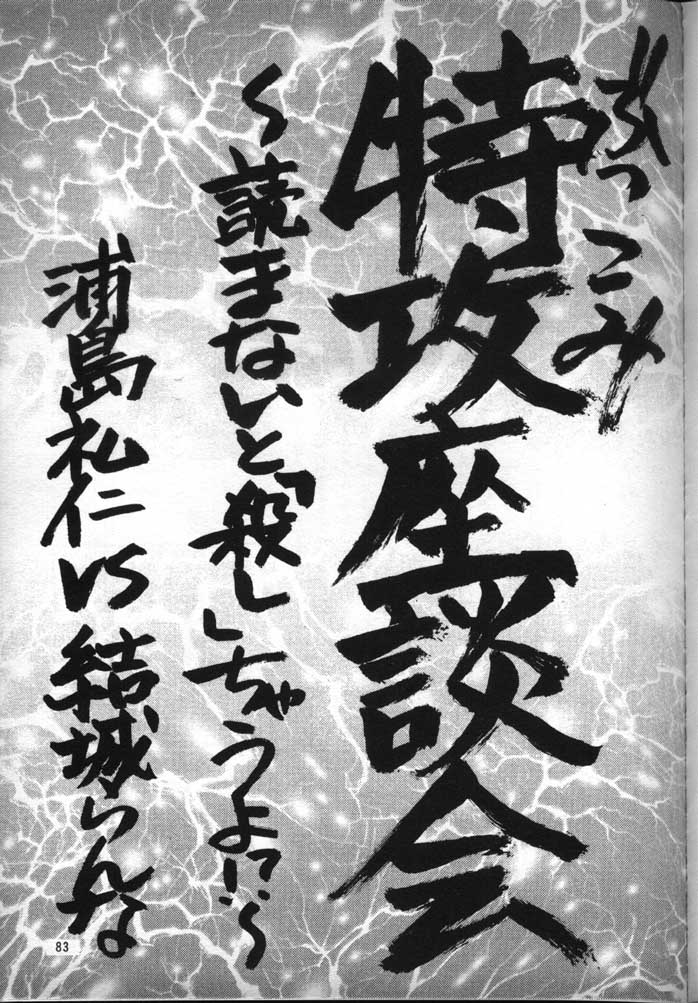 ぶっこみ
特攻座談会
〜読まないと「殺し」ちゃうよ!!〜
浦島礼仁 VS 結城らんな
83